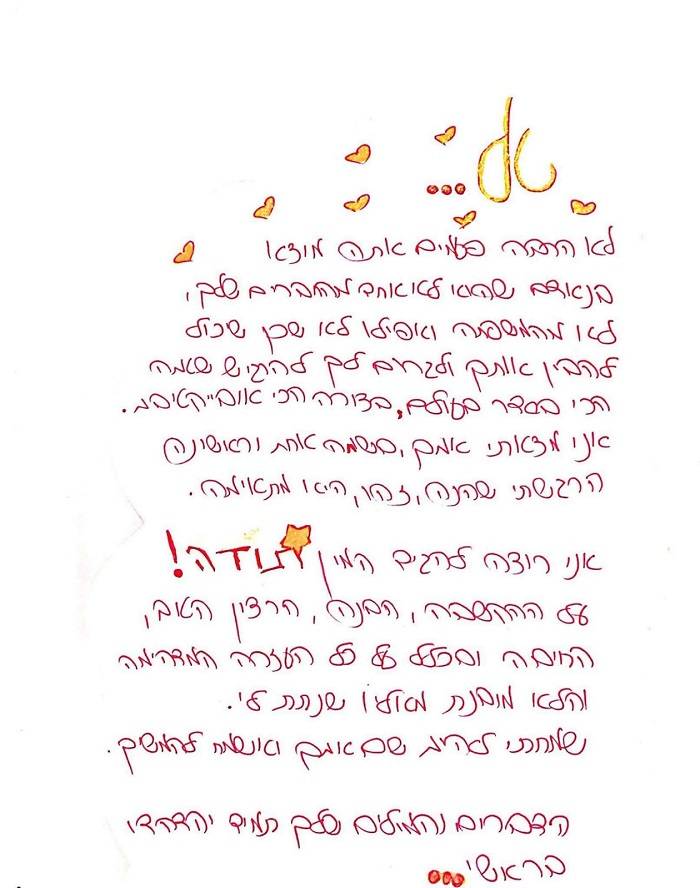 טל...
לא הרבה פעמים אתה מוצא
בנאדם שהוא לא אחד מהחברים שלך,
לא מהמשפחה ואפילו לא שכן שיכול
להבין אותך ולגרום לך להרגיש שאתה
הכי בסדר בעולם, בצורה הכי אובייקטיבית.
אני מצאתי אותך, בנשמה אחת וראשונה
הרגשתי שהנה, זהו, היא מתאימה.
אני רוצה להגיד המון תודה!
על ההקשבה, הבנה, הרצון הטוב,
החיבה ובכלל על כל העזרה המדהימה
והלא מובנת מאליו שנתת לי.
שמחתי לארח שם אותך ואשמח להמשיך.
הדברים והמילים שלך תמיד יהדהדו
בראשי...